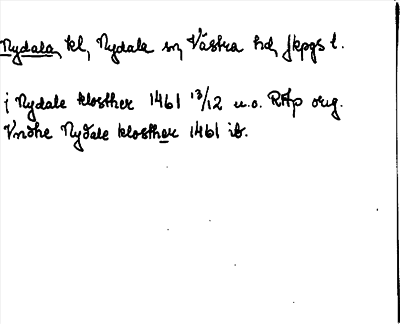 Nydala kl, Nydala sn, Västra hd, Jkpgs l.
j Nydale klosther 1461 13/12 u.o. RAp orig.
Vndhe Nydale klosther 1461 ib.